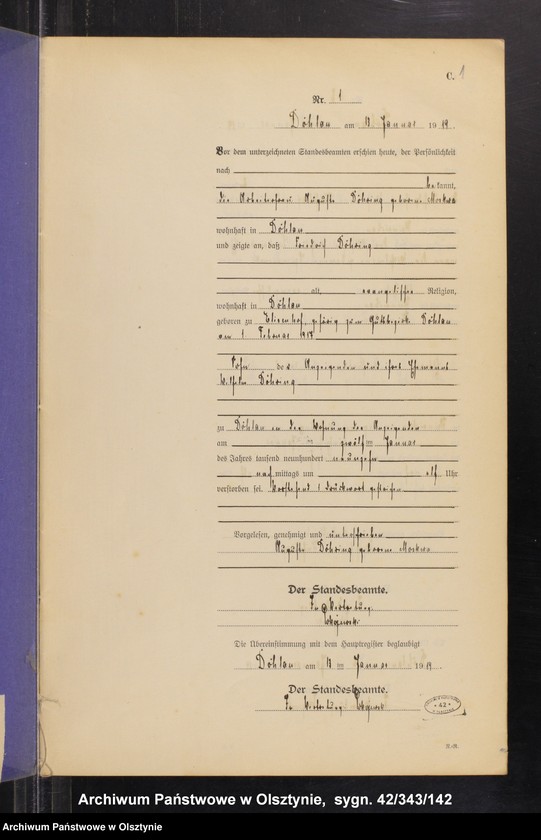 C. 1
Nr. 1
Döhlau am 13. Januar 1919.
Vor dem unterzeichneten Standesbeamten erschien heute, der Persönlichkeit
nach
bekannt,
die Arbeiterfrau Auguste Döhring geborene Moskwa
wohnhaft in Döhlau
und zeigte an, daß Friedrich Döhring
alt, evangelischer Religion,
wohnhaft in Döhlau
geboren zu Elisenhof, gehörig zum Gutsbezirk Döhlau
am 1 Februar
Sohn der Anzeigenden und ihres Ehemannes
Wilhelm Döhring
zu Döhlau in der Wohnung der Anzeigenden
am zwölften Januar
des Jahres tausend neunhundert neunzehn
nachmittags um elf Uhr
verstorben sei. Vorstehend 1 Druckwort gestrichen.
Vorgelesen, genehmigt und unterschrieben
Auguste Döhring geborene Moskwa
Der Standesbeamte.
In Vertretung
Die Übereinstimmung mit dem Hauptregister beglaubigt
Döhlau am 13 ten Januar 1919.
Der Standesbeamte.
In Vertretung
* 42 *
R.-R.
Archiwum Państwowe w Olsztynie, sygn. 42/343/142
Archiwum Państwowe w Olsztynie